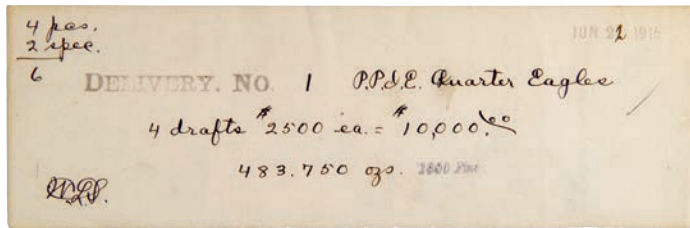 4 pcs.
2 spec.
6
JUN 22 1915
DELIVERY. NO. 1 P.P.I.E. Quarter Eagles
4 drafts $2500 ea. = $10,000.00
483.750 ozs.